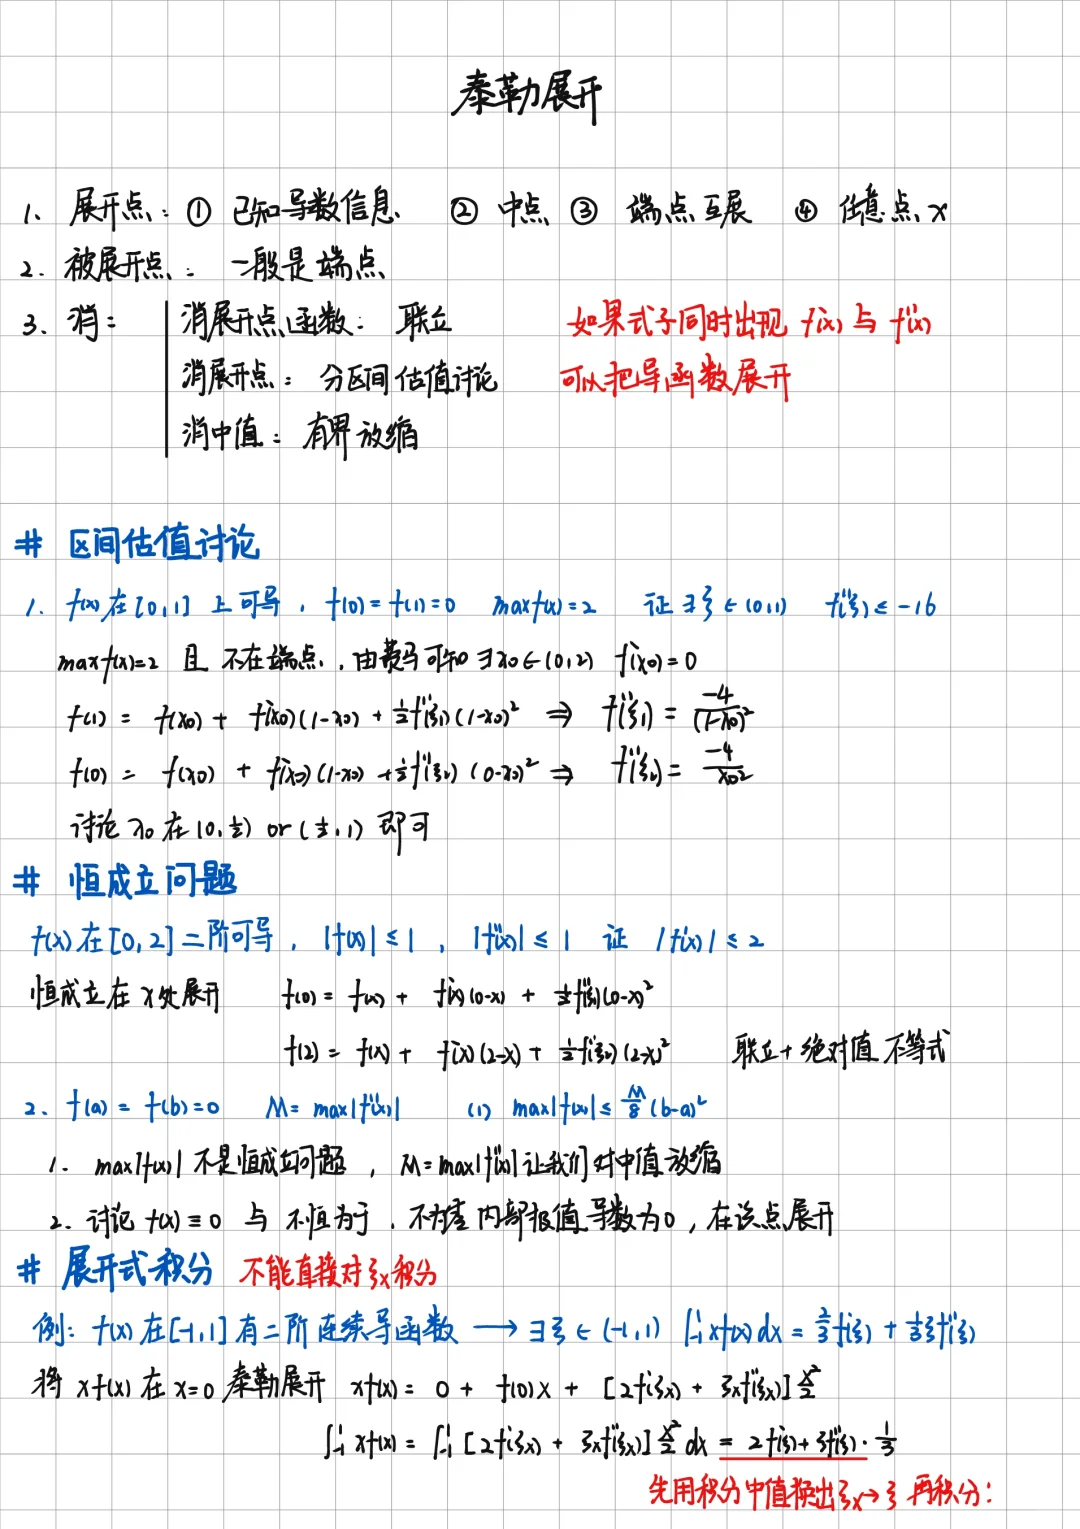 泰勒展开
1. 展开点: ① 已知导数信息 ② 中点 ③ 端点互展 ④ 任意点 x
2. 被展开点: 一般是端点
3. 消: 消展开点函数: 联立 如果式子同时出现 f(x) 与 f'(x)
消展开点: 分区间估值讨论 可以把导函数展开
消中值: 有界放缩
# 区间估值讨论
1. f(x) 在 [0,1] 上可导, f(0)=f(1)=0 max f(x)=2 证 ∃ξ∈(0,1) f''(ξ)≤-16
max f(x)=2 且 不在端点, 由费马可知 ∃x₀∈(0,2) f'(x₀)=0
f(1) = f(x₀) + f'(x₀)(1-x₀) + ½f''(ξ₁)(1-x₀)² ⇒ f''(ξ₁) = -4/(1-x₀)²
f(0) = f(x₀) + f'(x₀)(1-x₀) + ½f''(ξ₂)(0-x₀)² ⇒ f''(ξ₂) = -4/x₀²
讨论 x₀ 在 (0,½) or (½,1) 即可
# 恒成立问题
f(x) 在 [0,2] 二阶可导, |f(x)|≤1, |f''(x)|≤1 证 |f'(x)|≤2
恒成立在 x 处展开 f(0) = f(x) + f'(x)(0-x) + ½f''(ξ₁)(0-x)²
f(2) = f(x) + f'(x)(2-x) + ½f''(ξ₂)(2-x)² 联立+绝对值不等式
2. f(a) = f(b)=0 M= max|f''(x)| (1) max|f(x)|≤ M/8 (b-a)²
1. max|f(x)| 不是恒成立问题, M=max|f''(x)| 让我们对中值放缩
2. 讨论 f(x)≡0 与 不恒为于, 不为零 内部极值导数为0, 在该点展开
# 展开式积分 不能直接对ξx积分
例: f(x) 在[-1,1]有二阶连续导函数 → ∃ξ∈(-1,1) ∫₋₁¹ xf(x)dx = ⅔f'(ξ) + ⅓ξf''(ξ)
将 xf(x) 在 x=0 泰勒展开 xf(x) = 0 + f(0)x + [2f'(ξx) + ξxf''(ξx)] x²/2
∫₋₁¹ xf(x) = ∫₋₁¹ [2f'(ξx) + ξxf''(ξx)] x²/2 dx = 2f'(ξ)+ξf''(ξ)·⅓
先用积分中值换出ξx→ξ 再积分: